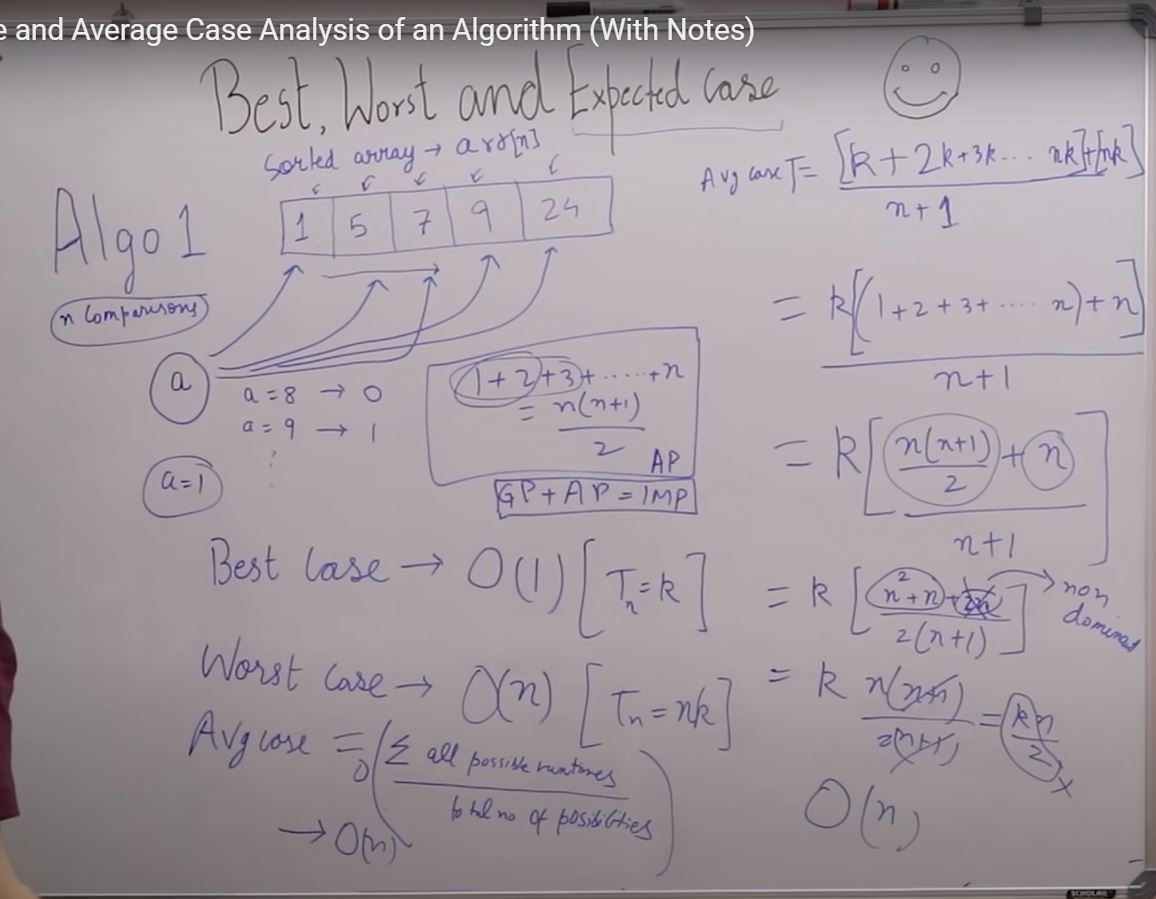 e and Average Case Analysis of an Algorithm (With Notes)
Best, Worst and Expected Case
Sorted array → arr[n]
Algo 1
1 5 7 9 24
n Comparisons
a
a = 8 → 0
a = 9 → 1
⋮
a=1
1+2+3+.....+n
= n(n+1)
2
AP
GP + AP = IMP
Best Case → O(1) [Tn=k]
Worst case → O(n) [Tn=nk]
Avg case = O(Σ all possible runtimes
total no of possibilities)
→ O(n)
Avg case T= [k+2k+3k... nk]+[nk]
n+1
= k[(1+2+3+.... n)+n]
n+1
= k[n(n+1)
2
+n]
n+1
= k[n²+n+2n
2(n+1)] → non
= k n(n+1)
2(n+1)
= kn
2
O(n)